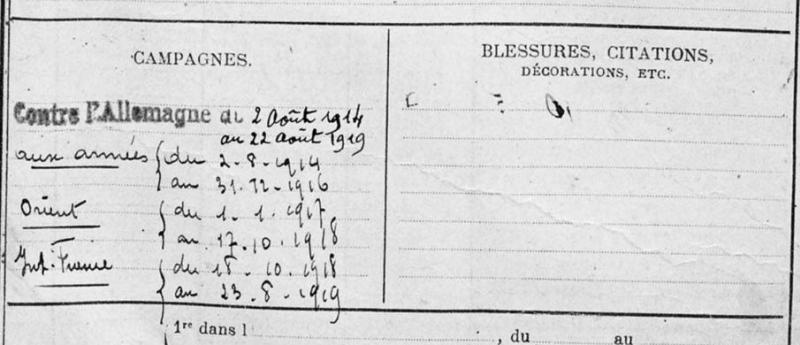 CAMPAGNES.
BLESSURES, CITATIONS,
DÉCORATIONS, ETC.
Contre l'Allemagne du 2 Août 1914
au 22 Août 1919
aux armées { du 2-8-1914
au 31-12-1916
Orient { du 1.1.1917
au 17.10.1918
Int. France { du 18.10.1918
au 23-8-1919
1re dans l , du au